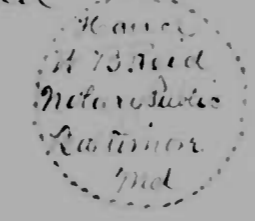 Harry
N B Reed
Notary Public
Baltimore
Md